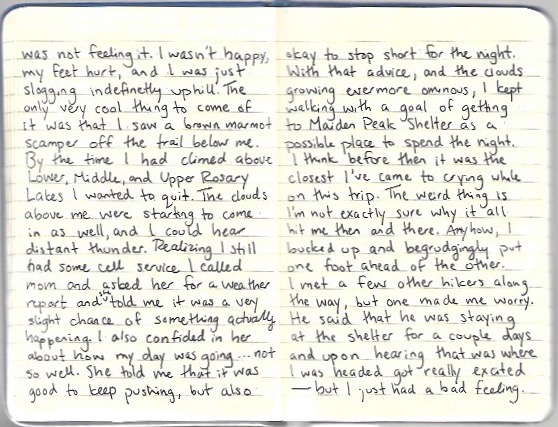 was not feeling it. I wasn't happy,
my feet hurt, and I was just
slogging indefinetly uphill. The
only very cool thing to come of
it was that I saw a brown marmot
scamper off the trail below me.
By the time I had climed above
Lower, Middle, and Upper Rosary
Lakes I wanted to quit. The clouds
above me were starting to come
in as well, and I could hear
distant thunder. Realizing I still
had some cell service I called
mom and asked her for a weather
report and she told me it was a very
slight chance of something actually
happening. I also confided in her
about how my day was going... not
so well. She told me that it was
good to keep pushing, but also
okay to stop short for the night.
With that advice, and the clouds
growing evermore ominous, I kept
walking with a goal of getting
to Maiden Peak Shelter as a
possible place to spend the night.
I think before then it was the
closest I've came to crying while
on this trip. The weird thing is
I'm not exactly sure why it all
hit me then and there. Anyhow, I
bucked up and begrudgingly put
one foot ahead of the other.
I met a few other hikers along
the way, but one made me worry.
He said that he was staying
at the shelter for a couple days
and upon hearing that was where
I was headed got really excited
— but I just had a bad feeling.